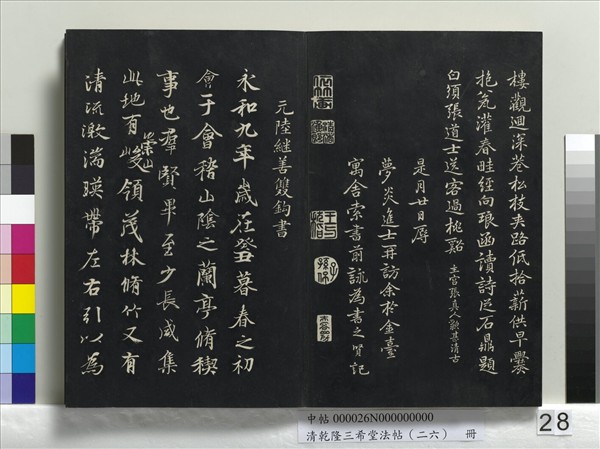 樓觀迴深巷松枝夾路低拾薪供早爨
抱瓮灌春畦經向琅函讀詩從石鼎題
白須張道士送客過桃谿
主宮張真人齡甚清古
是月廿日
夢炎進士再訪余於金臺
寓舍索書前詠為書之 記
元陸繼善雙鉤書
永和九年歲在癸丑暮春之初
會于會稽山陰之蘭亭脩稧
事也群賢畢至少長咸集
此地有崇山峻領茂林脩竹又有
清流激湍暎帶左右引以為
中帖 000026N000000000
清乾隆三希堂法帖（二六） 冊
28